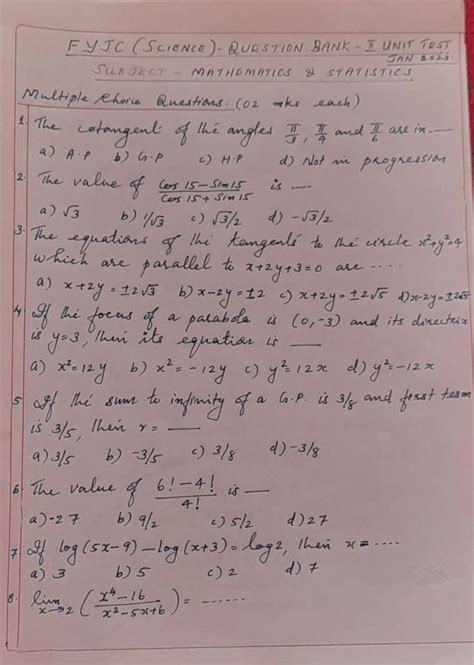 FYJC (SCIENCE) - QUESTION BANK - II UNIT TEST
JAN 2023.
SUBJECT - MATHEMATICS & STATISTICS
Multiple Choice Questions: (02 mks each)
1. The cotangent of the angles π/3, π/4 and π/6 are in ----
a) A.P b) G.P c) H.P d) Not in progression
2. The value of (Cos 15 - Sin 15)/(Cos 15 + Sin 15) is ----
a) √3 b) 1/√3 c) √3/2 d) -√3/2
3. The equations of the tangents to the circle x²+y²=4
which are parallel to x+2y+3=0 are ----
a) x+2y=±2√3 b) x-2y=±2 c) x+2y=±2√5 d) x-2y=±2√5
4. If the focus of a parabola is (0,-3) and its directrix
is y=3, then its equation is —
a) x²=12y b) x²=-12y c) y²=12x d) y²=-12x
5 If the sum to infinity of a G.P. is 3/8 and first term
is 3/5, then r = —
a) 3/5 b) -3/5 c) 3/8 d) -3/8
6. The value of (6!-4!)/4! is —
a) -27 b) 9/2 c) 5/2 d) 27
7 If log(5x-9) - log(x+3) = log2, then x = ----
a) 3 b) 5 c) 2 d) 7
8. lim x→2 ((x⁴-16)/(x²-5x+6)) = ------